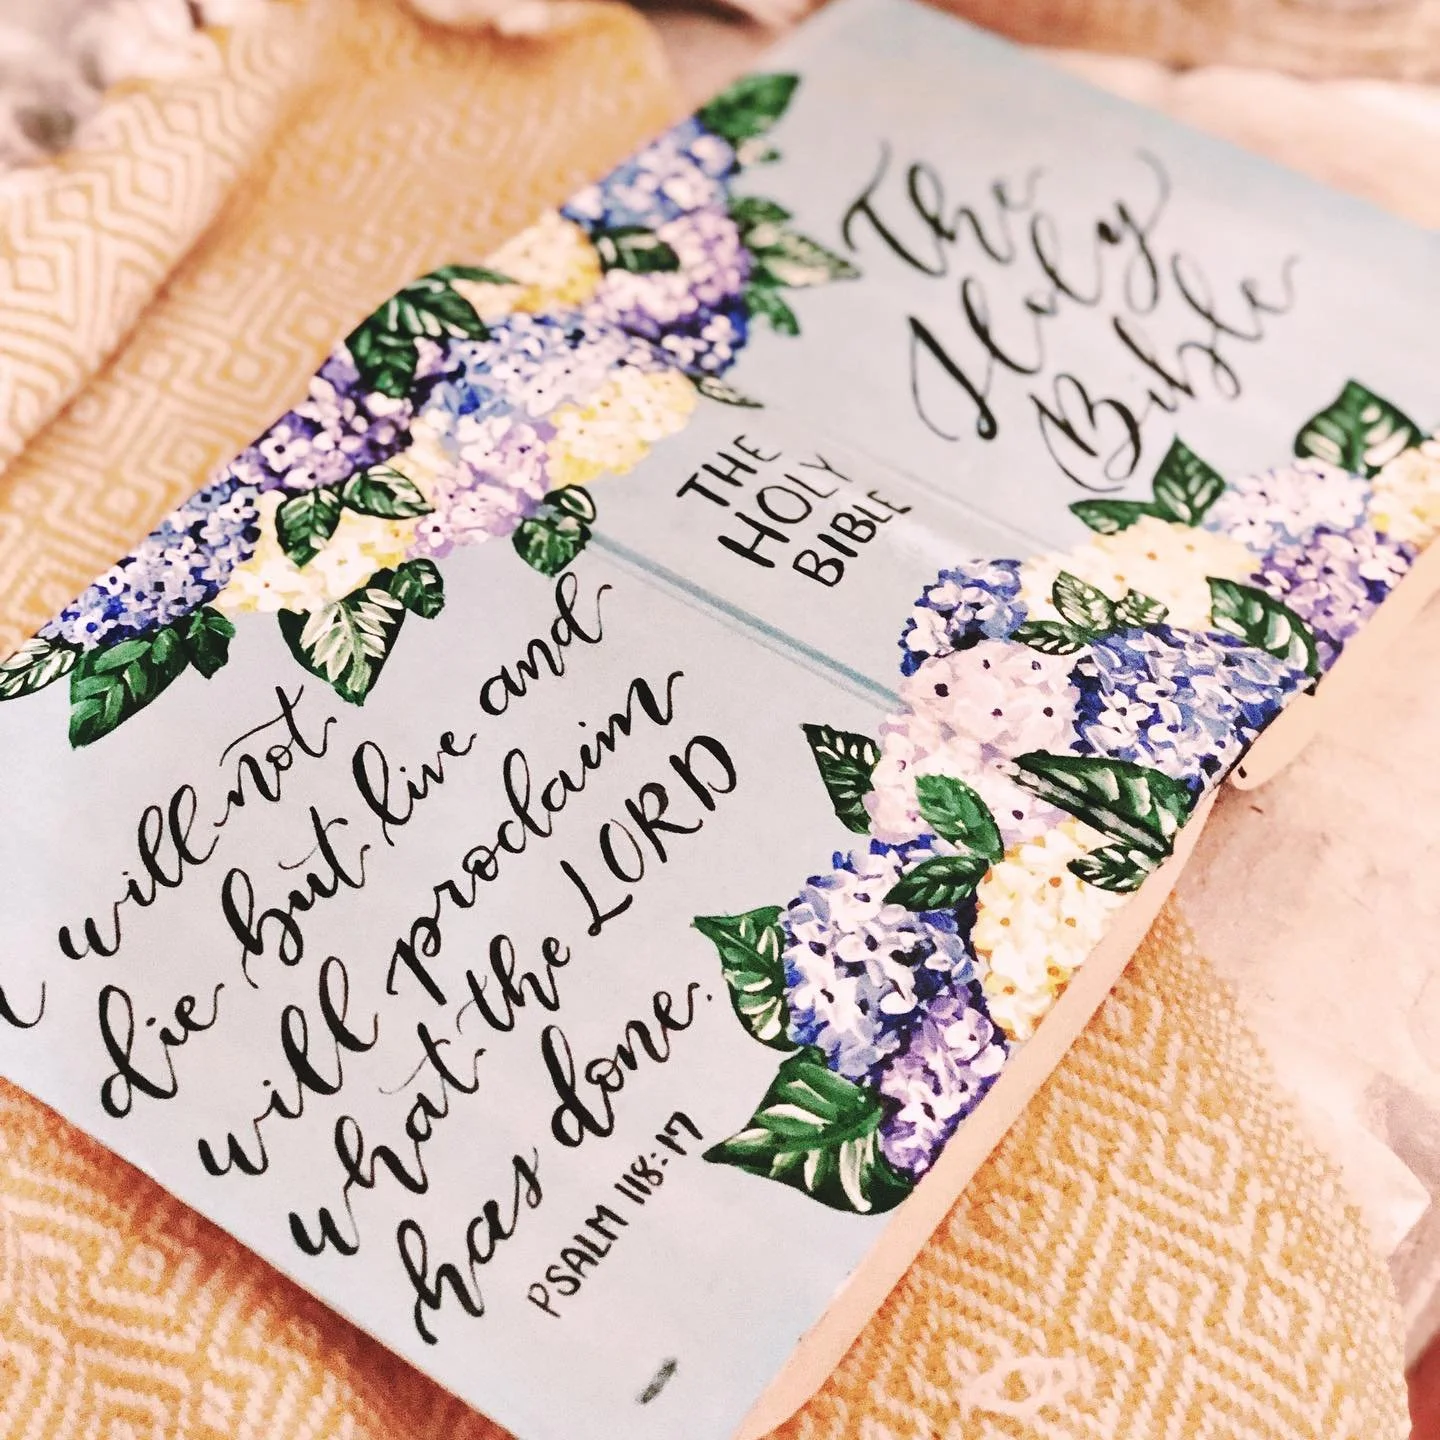 The
Holy
Bible
THE
HOLY
BIBLE
I will not
die but live and
will proclaim
what the LORD
has done.
PSALM 118:17